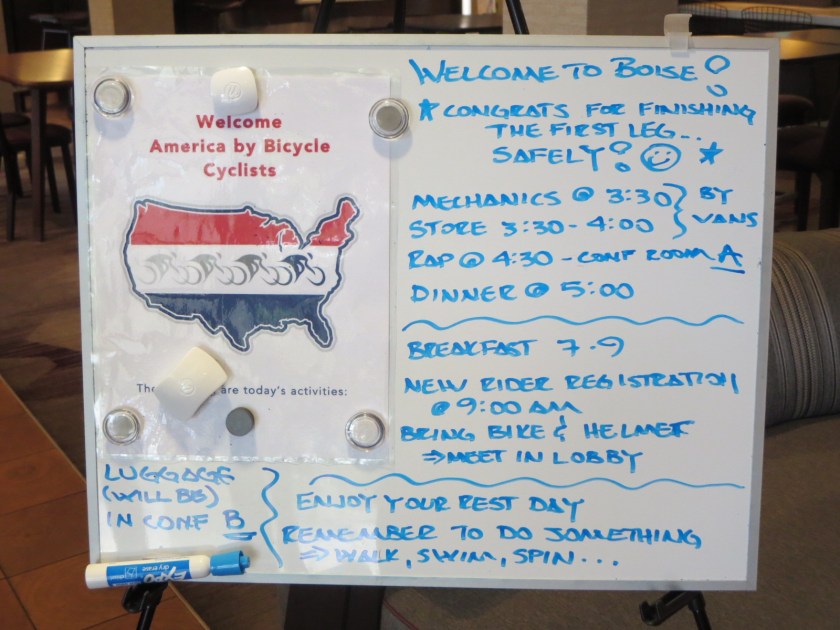 Welcome
America by Bicycle
Cyclists
are today's activities:
WELCOME TO BOISE!
* CONGRATS FOR FINISHING
THE FIRST LEG...
SAFELY! ☺ *
MECHANICS @ 3:30 } BY
STORE 3:30 - 4:00 } VANS
RAP @ 4:30 - CONF ROOM A
DINNER @ 5:00
BREAKFAST 7-9
NEW RIDER REGISTRATION
@ 9:00 AM
BRING BIKE & HELMET
⇒ MEET IN LOBBY
LUGGAGE
(WILL BE)
IN CONF B
ENJOY YOUR REST DAY
REMEMBER TO DO SOMETHING
⇒ WALK, SWIM, SPIN...
EXPO
dry erase